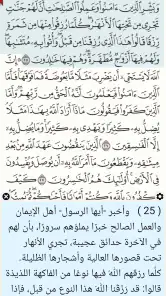 وَبَشِّرِ ٱلَّذِينَ ءَامَنُوا۟ وَعَمِلُوا۟ ٱلصَّٰلِحَٰتِ أَنَّ لَهُمْ جَنَّٰتٍ
تَجْرِى مِن تَحْتِهَا ٱلْأَنْهَٰرُ كُلَّمَا رُزِقُوا۟ مِنْهَا مِن ثَمَرَةٍ
رِّزْقًا قَالُوا۟ هَٰذَا ٱلَّذِى رُزِقْنَا مِن قَبْلُ وَأُتُوا۟ بِهِۦ مُتَشَٰبِهًا
وَلَهُمْ فِيهَآ أَزْوَٰجٌ مُّطَهَّرَةٌ وَهُمْ فِيهَا خَٰلِدُونَ ۞ إِنَّ
ٱللَّهَ لَا يَسْتَحْىِۦٓ أَن يَضْرِبَ مَثَلًا مَّا بَعُوضَةً فَمَا فَوْقَهَا فَأَمَّا
ٱلَّذِينَ ءَامَنُوا۟ فَيَعْلَمُونَ أَنَّهُ ٱلْحَقُّ مِن رَّبِّهِمْ وَأَمَّا
ٱلَّذِينَ كَفَرُوا۟ فَيَقُولُونَ مَاذَآ أَرَادَ ٱللَّهُ بِهَٰذَا مَثَلًا
يُضِلُّ بِهِۦ كَثِيرًا وَيَهْدِى بِهِۦ كَثِيرًا وَمَا يُضِلُّ بِهِۦٓ
إِلَّا ٱلْفَٰسِقِينَ ٱلَّذِينَ يَنقُضُونَ عَهْدَ ٱللَّهِ مِنۢ بَعْدِ
مِيثَٰقِهِۦ وَيَقْطَعُونَ مَآ أَمَرَ ٱللَّهُ بِهِۦٓ أَن يُوصَلَ وَيُفْسِدُونَ
فِى ٱلْأَرْضِ أُو۟لَٰٓئِكَ هُمُ ٱلْخَٰسِرُونَ كَيْفَ
تَكْفُرُونَ بِٱللَّهِ وَكُنتُمْ أَمْوَٰتًا فَأَحْيَٰكُمْ ثُمَّ يُمِيتُكُمْ
( 25 ) وأخبر -أيها الرسول- أهل الإيمان
والعمل الصالح خبرًا يملؤهم سرورًا، بأن لهم
في الآخرة حدائق عجيبة، تجري الأنهار
تحت قصورها العالية وأشجارها الظليلة.
كلَّما رزقهم الله فيها نوعًا من الفاكهة اللذيذة
قالوا: قد رزقَنا الله هذا النوع من قبل، فإذا